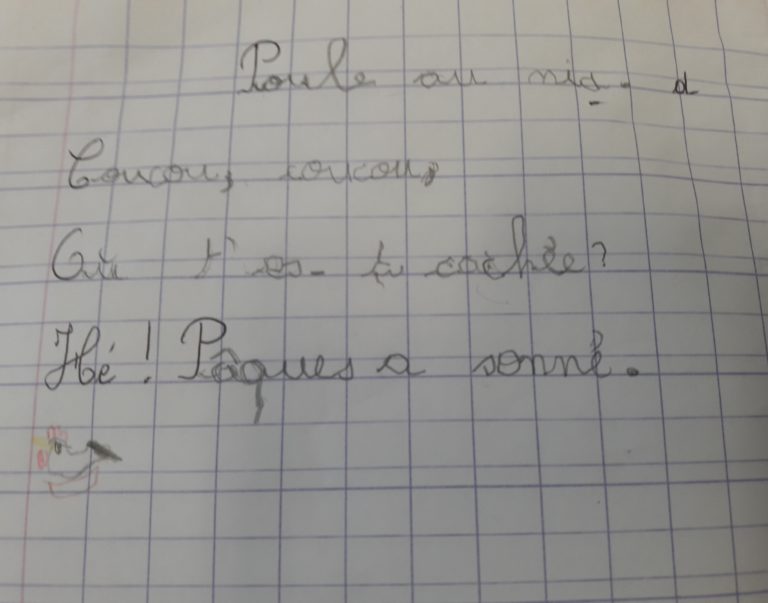 Poule au nid. d
Coucou, coucou,
Où t'es-tu cachée?
Hé! Pâques a sonné.